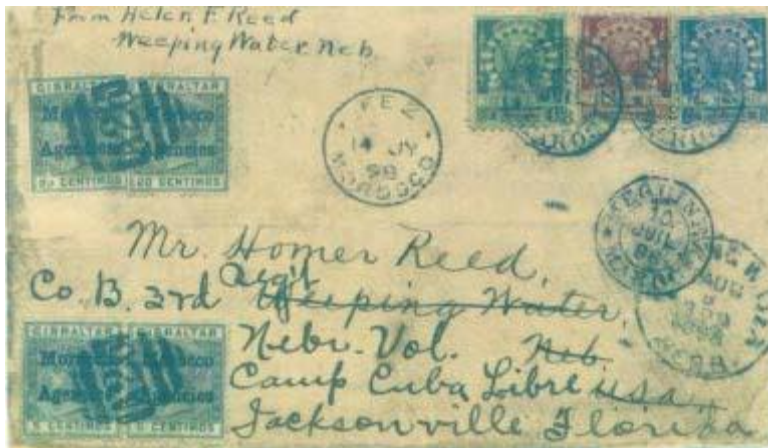 From Helen F. Reed
Weeping Water, Neb
GIBRALTAR GIBRALTAR
Morocco Morocco
Agencies Agencies
20 CENTIMOS 20 CENTIMOS
FEZ
14 JY
98
MOROCCO
Mr. Homer Reed,
Co. B. 3rd Reg't Weeping Water,
Nebr. Vol. Neb.
Camp Cuba Libre U.S.A.
Jacksonville Florida
GIBRALTAR GIBRALTAR
Morocco Morocco
Agencies Agencies
5 CENTIMOS 5 CENTIMOS
10
JUIL
AUG
NEBR.